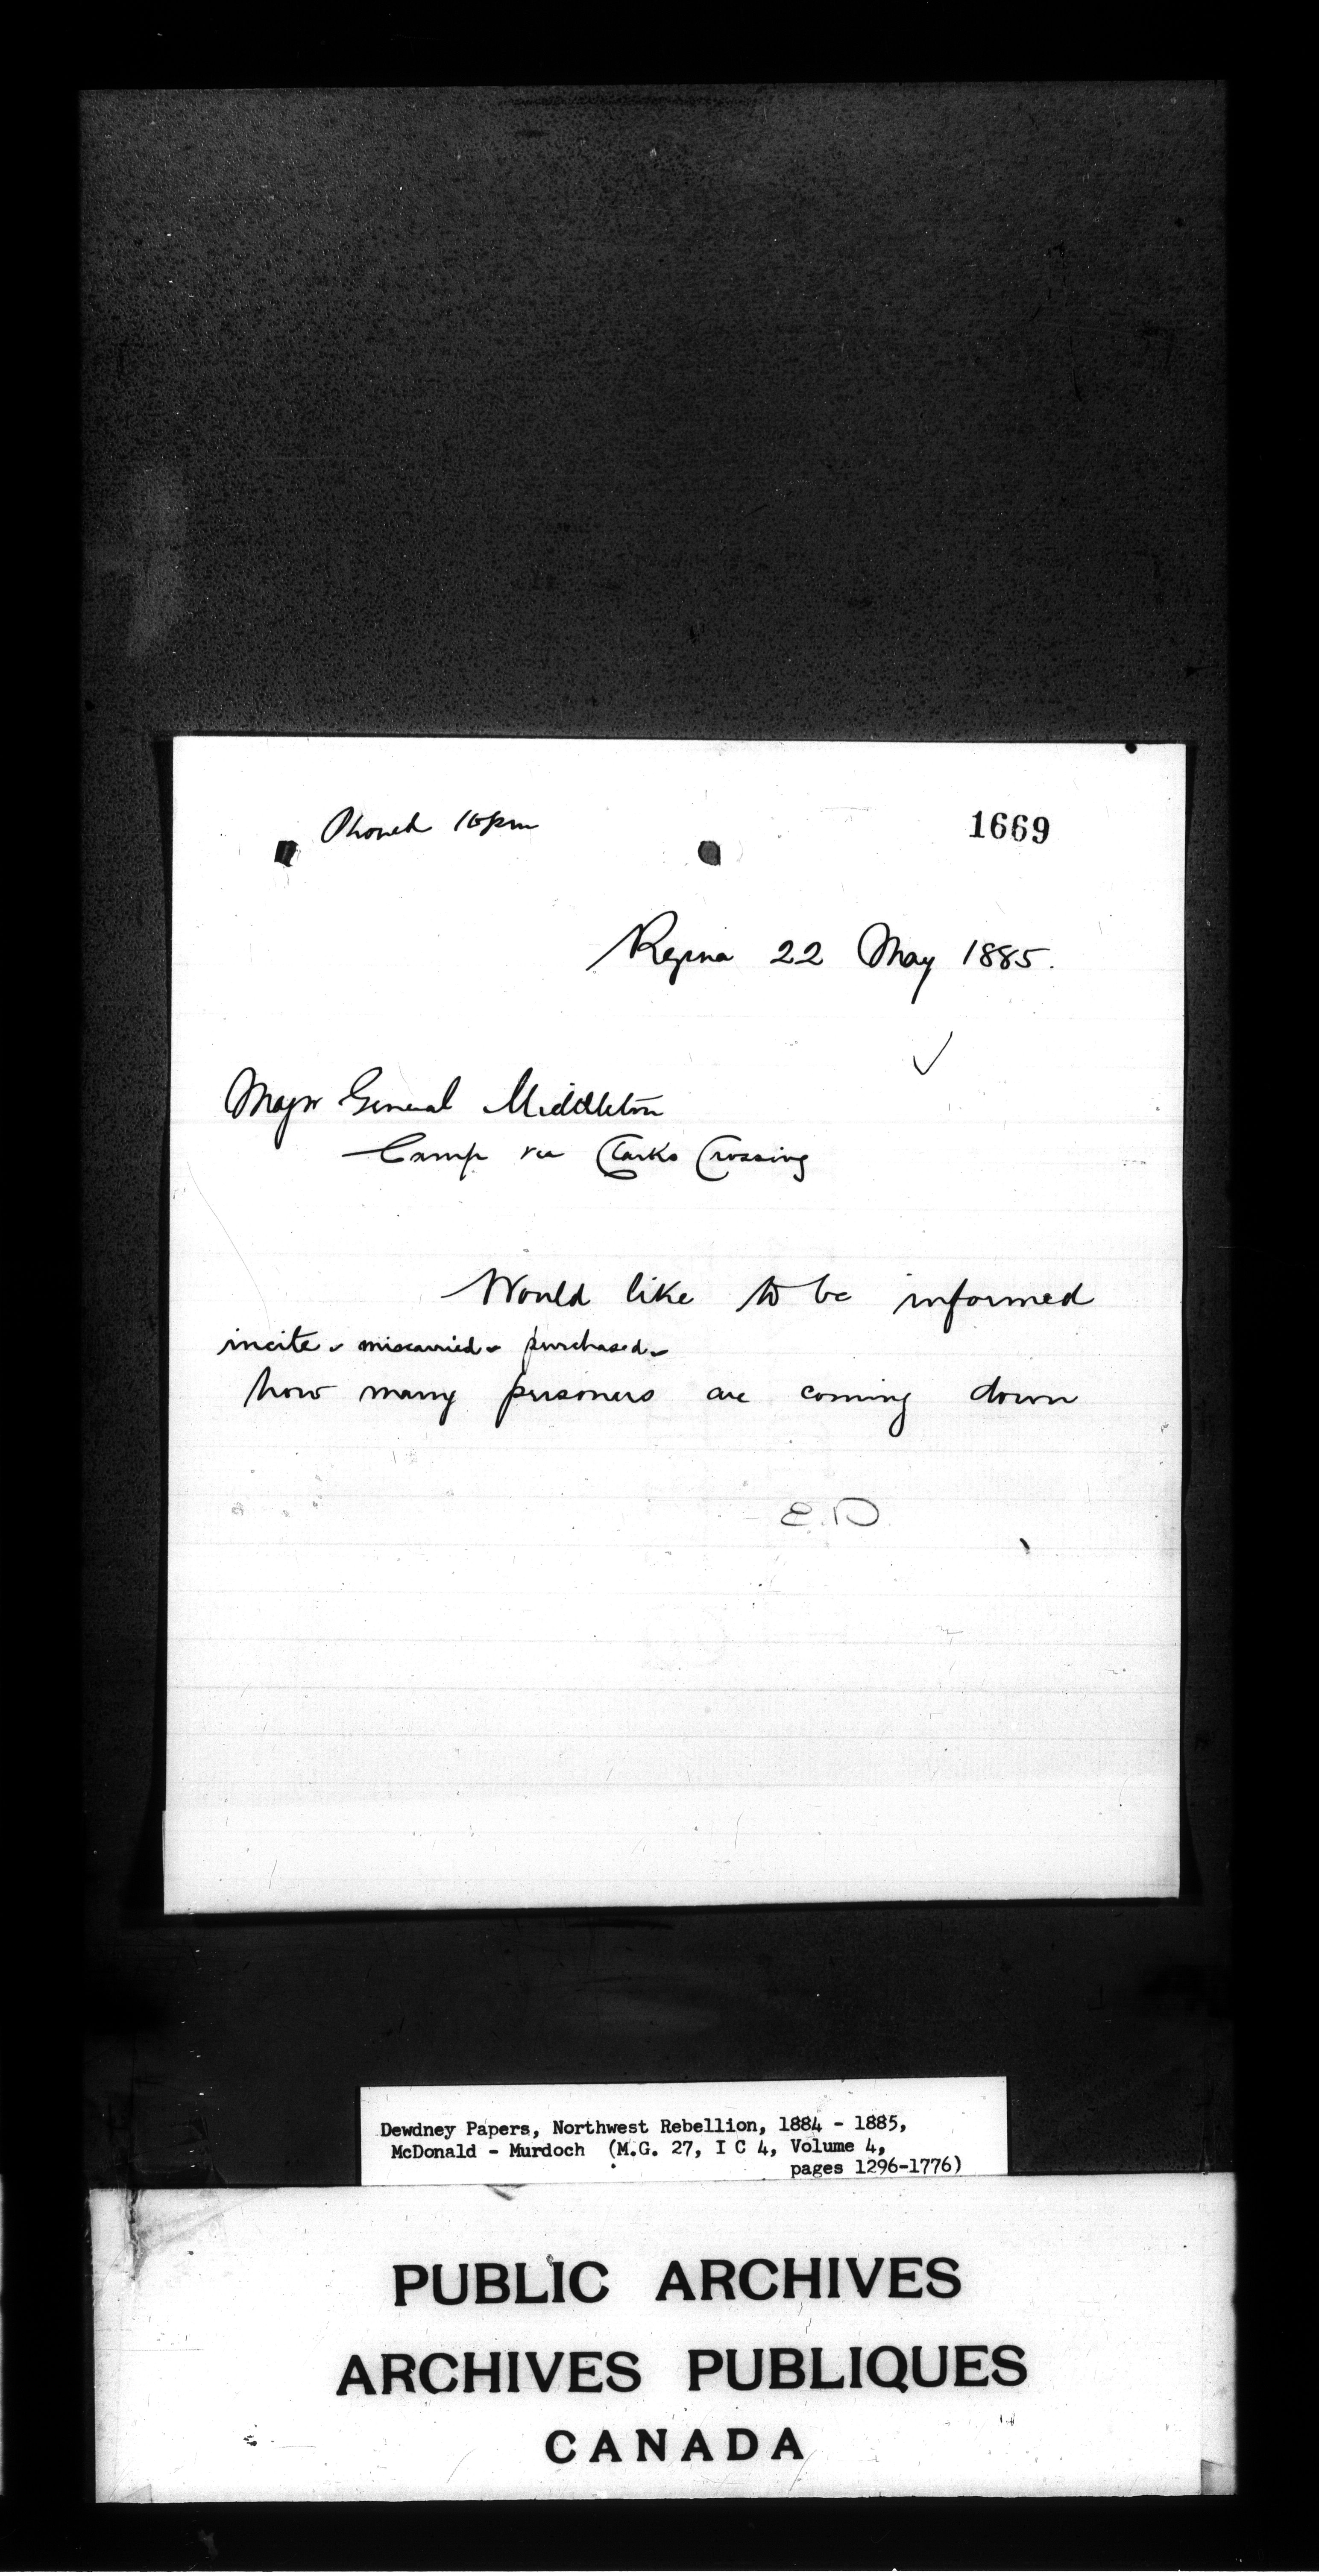 Phoned 10pm
1669
Regina 22 May 1885.
Major General Middleton
Camp via Clarks Crossing
Would like to be informed
incite - miscarried - purchased -
how many prisoners are coming down
E.D
Dewdney Papers, Northwest Rebellion, 1884 - 1885,
McDonald - Murdoch (M.G. 27, I C 4, Volume 4,
pages 1296-1776)
PUBLIC ARCHIVES
ARCHIVES PUBLIQUES
CANADA